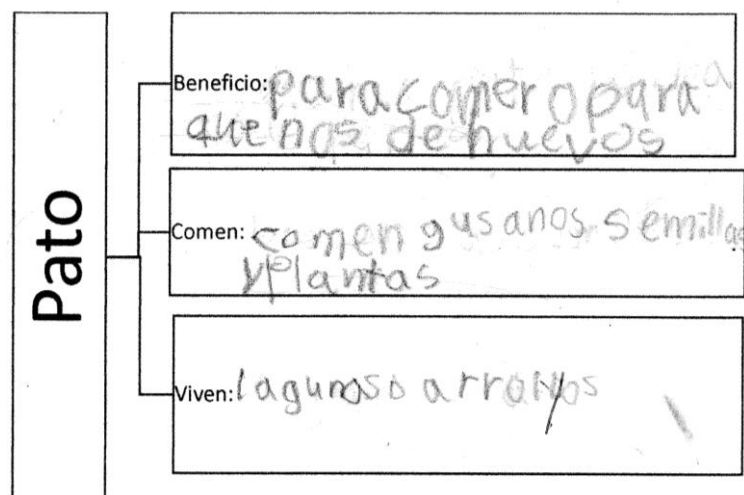 Pato
Beneficio: para comer o para
que nos de huevos
Comen: comen gusanos semillas
y plantas
Viven: lagunas o arroyos